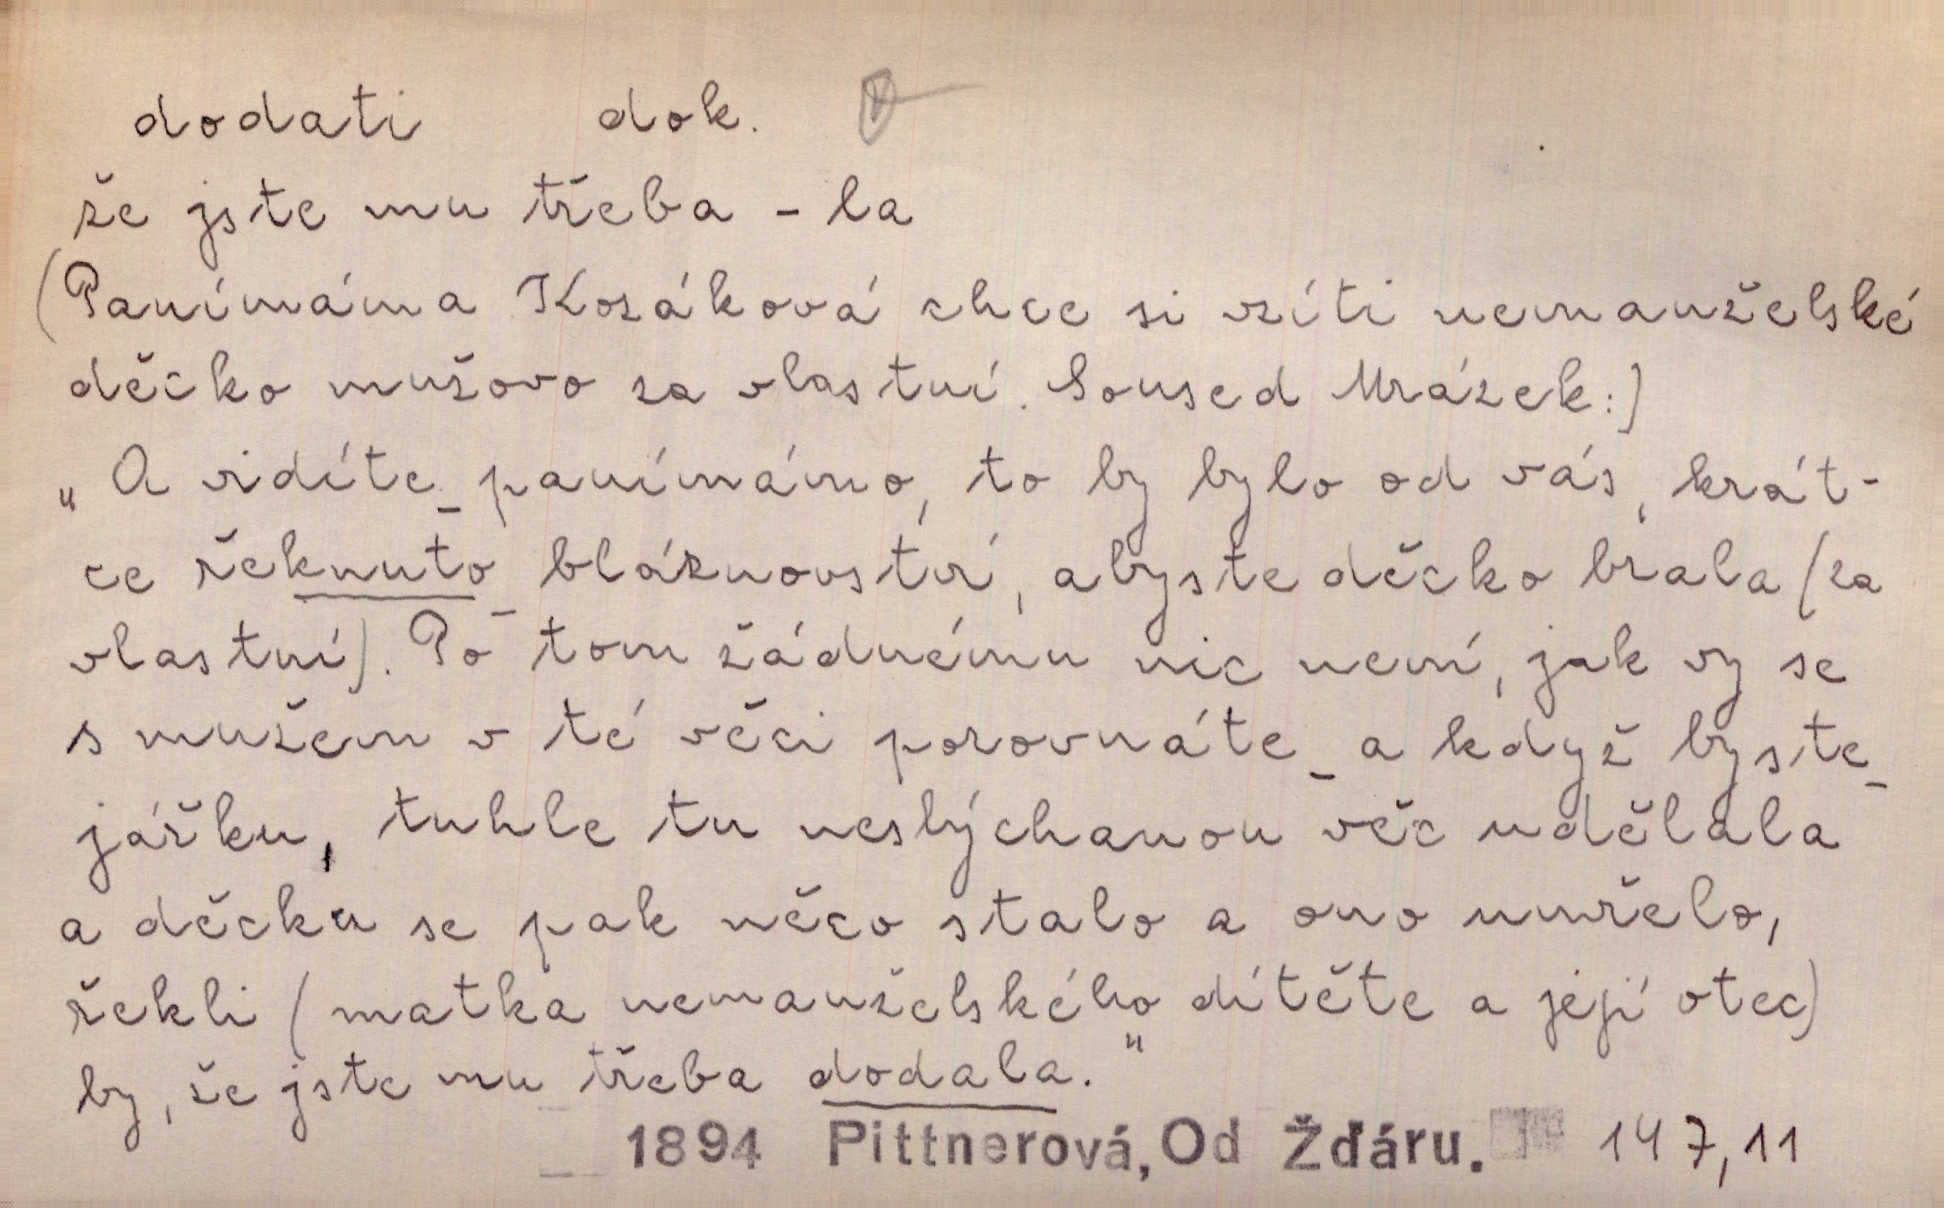 dodati dok.
že jste mu třeba - la
(Panímáma Kozáková chce si vzíti nemanželské
děcko mužovo za vlastní. Soused Mrázek:)
„A vidíte_panímámo, to by bylo od vás, krát-
ce řeknuto_bláznovství, abyste děcko brala (za
vlastní). Po tom žádnému nic není, jak vy se
s mužem v té věci porovnáte_a když byste_
jářku, tuhle tu neslýchanou věc udělala
a děcku se pak něco stalo a ono umřelo,
řekli (matka nemanželského dítěte a její otec)
by, že jste mu třeba dodala."
1894 Pittnerová, Od Žďáru. 147,11